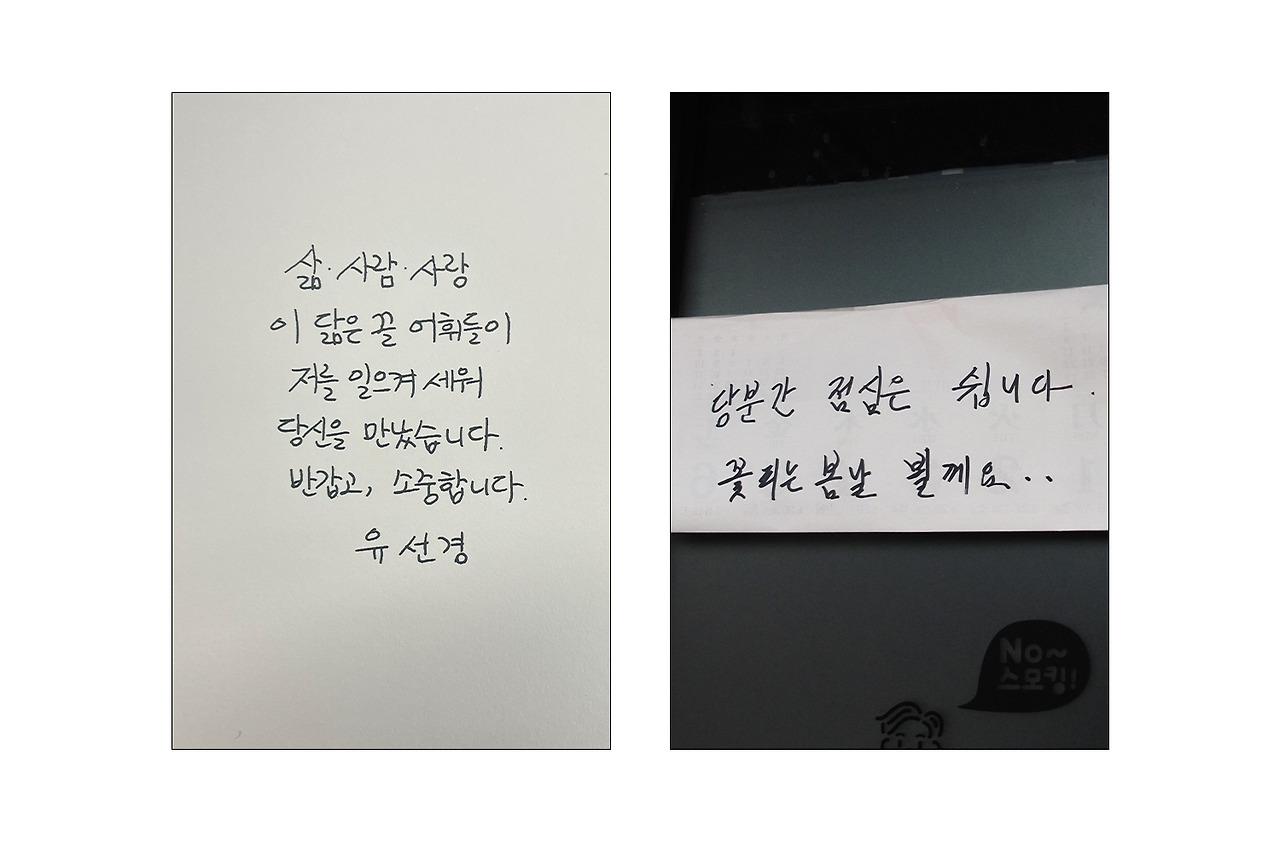 삶·사람·사랑
이 닮은 꼴 어휘들이
저를 일으켜 세워
당신을 만났습니다.
반갑고, 소중합니다.
유선경
당분간 점심은 쉽니다.
꽃피는 봄날 뵐께요..
No~
스모킹!